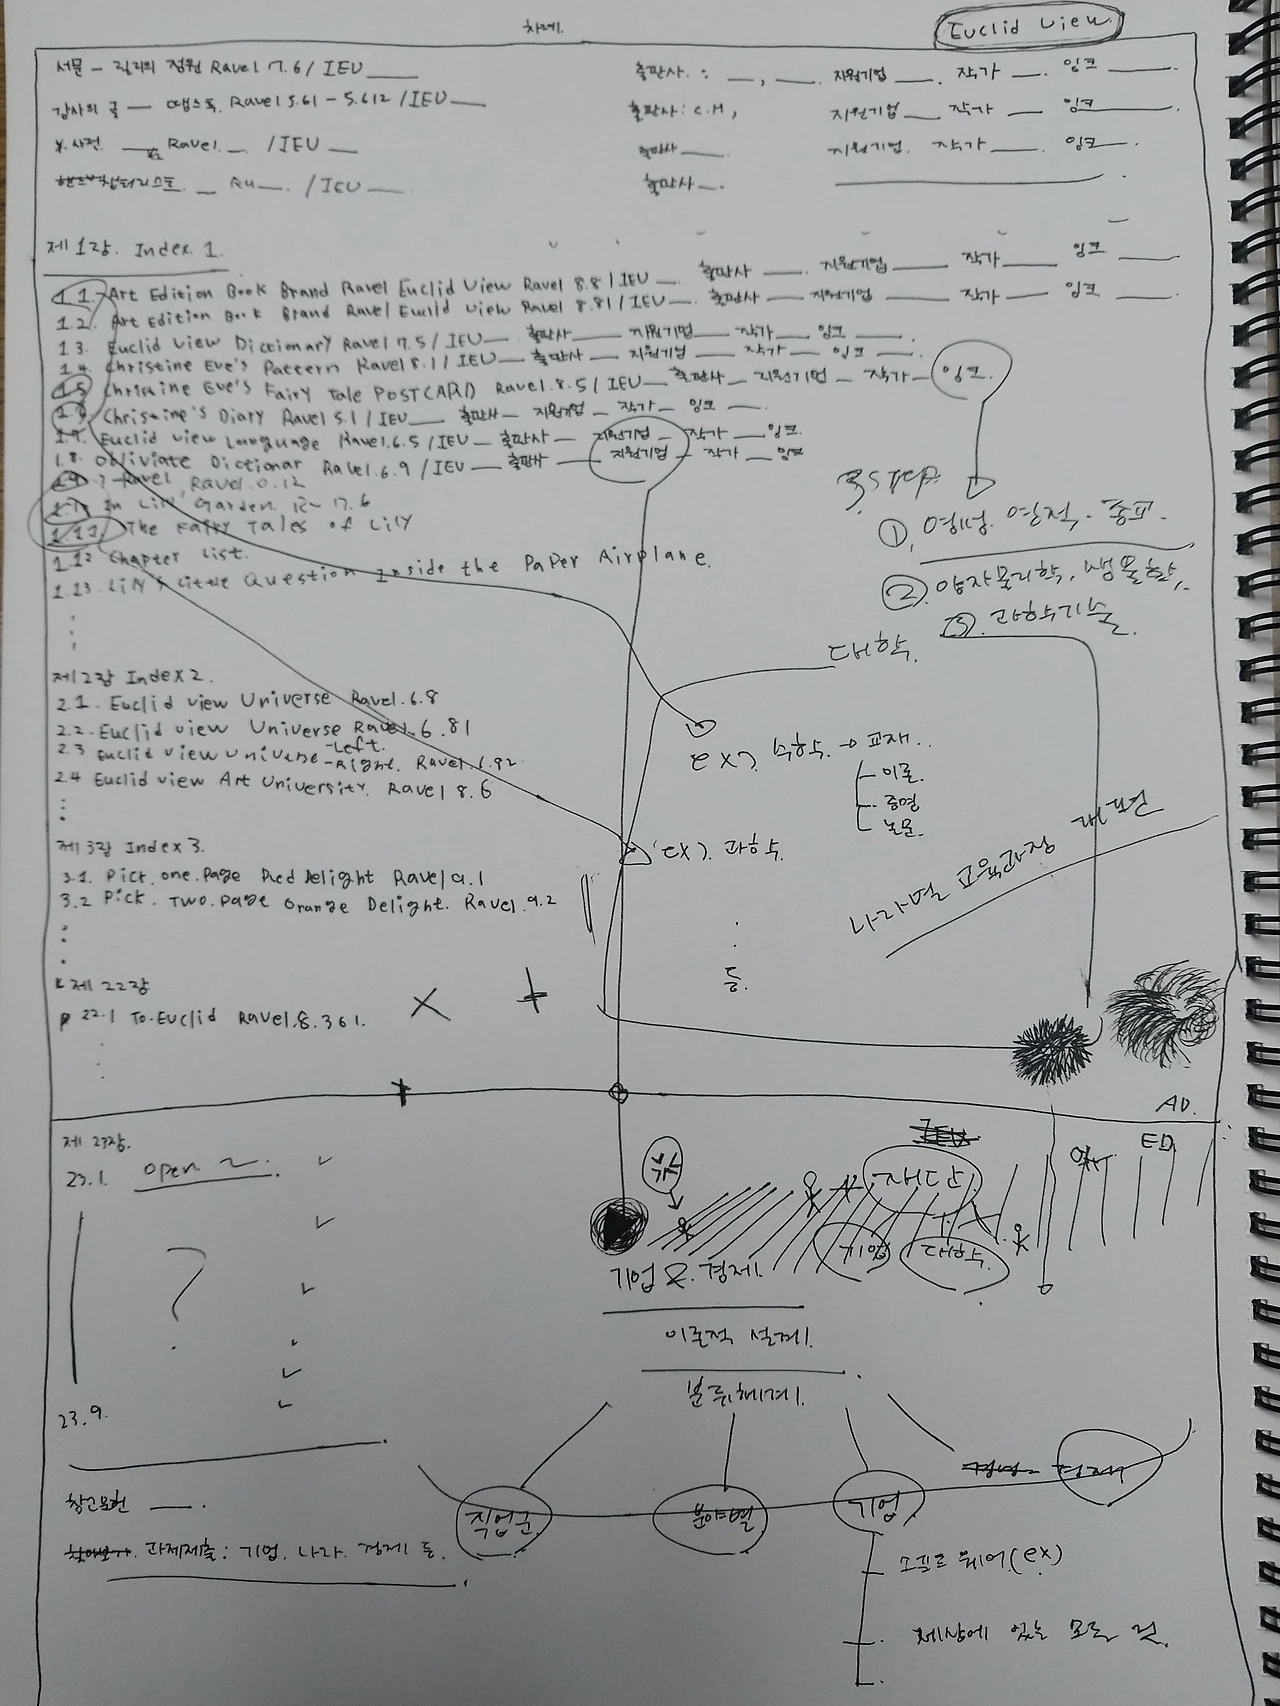 차례.
Euclid View.
서문 - 릴리의 정원 Ravel 7.6 / IEU ___ 출판사 : __, ___. 지원기업 ___. 작가 __. 잉크 ___.
감사의 글 — 땡스북. Ravel 5.61 - 5.612 / IEU ___ 출판사: C.H, 지원기업 ___ 작가 ___. 잉크 ___.
사전 ___ Ravel. __. / IEU __ 출판사 ___. 지원기업. 작가 ___. 잉크 ___.
챕터리스트. __ Ru__. / IEU ___. 출판사 __.
제 1장. Index. 1.
1.1. Art Edition Book Brand Ravel Euclid View Ravel 8.8 / IEU __. 출판사 ___. 지원기업 ___. 작가 ___. 잉크 ___.
1.2. Art Edition Book Brand Ravel Euclid View Ravel 8.81 / IEU __. 출판사 ___ 지원기업 ___. 작가 ___. 잉크 ___.
1.3. Euclid View Dictionary Ravel 7.5 / IEU __. 출판사 ___ 지원기업 ___ 작가 __ 잉크 ___.
1.4. Christine Eve's Pattern Ravel 8.1 / IEU __ 출판사 __ 지원기업 __ 작가 __ 잉크 __.
1.5. Christine Eve's Fairy Tale POSTCARD Ravel.8.5 / IEU __ 출판사 _ 지원기업 _ 작가 _ 잉크.
Christine's Diary Ravel 5.1 / IEU ___ 출판사 _ 지원기업 _ 작가 _ 잉크 __.
Euclid View Language Ravel.6.5 / IEU __ 출판사 __ 지원기업 __ 작가 __ 잉크.
1.8. Obliviate Dictionar Ravel.6.9 / IEU ___ 출판사 ___ 지원기업 _ 작가 __ 잉크
1.9. ? - Ravel, Ravel.0.12
In Lily, Garden. R- 17.6
1.11. The Fairy Tales of Lily
1.12 Chapter List.
1.13. Lily's Little Question Inside the Paper Airplane.
3 STEP
① 영성. 영적. 종교.
② 양자물리학, 생물학,
③ 과학기술.
대학.
제2장 Index 2.
2.1. Euclid view Universe Ravel.6.8
2.2. Euclid view Universe Ravel.6.81
2.3 Euclid View Universe -Left. -Right. Ravel.6.82.
2.4 Euclid view Art University. Ravel 8.6
ex). 수학. → 교재..
이론.
증명
논문.
ex). 과학.
나라별 교육과정 개편
등.
제 3장 Index 3.
3.1. Pick. one. Page Red Delight Ravel 9.1
3.2 Pick. Two. page Orange Delight. Ravel.9.2
제 22장
22.1 To. Euclid Ravel.8.361.
AD.
제 23장.
23.1. open
?
23.9.
IEU
ED.
재단
기업
대학.
기업 &. 경제.
이론적 설계.
분류체계.
직업군.
분야별
기업
경제
소프트웨어(ex)
세상에 있는 모든 것.
참고문헌 ___.
과제제출 : 기업. 나라. 경제 등.